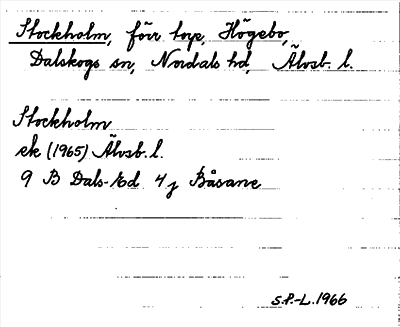 Stockholm, förr torp, Högebo,
Dalskogs sn, Nordals hd, Älvsb. l.
Stockholm
ek (1965) Älvsb. l.
9 B Dals-Ed 4j Båsane
S.P.-L. 1966